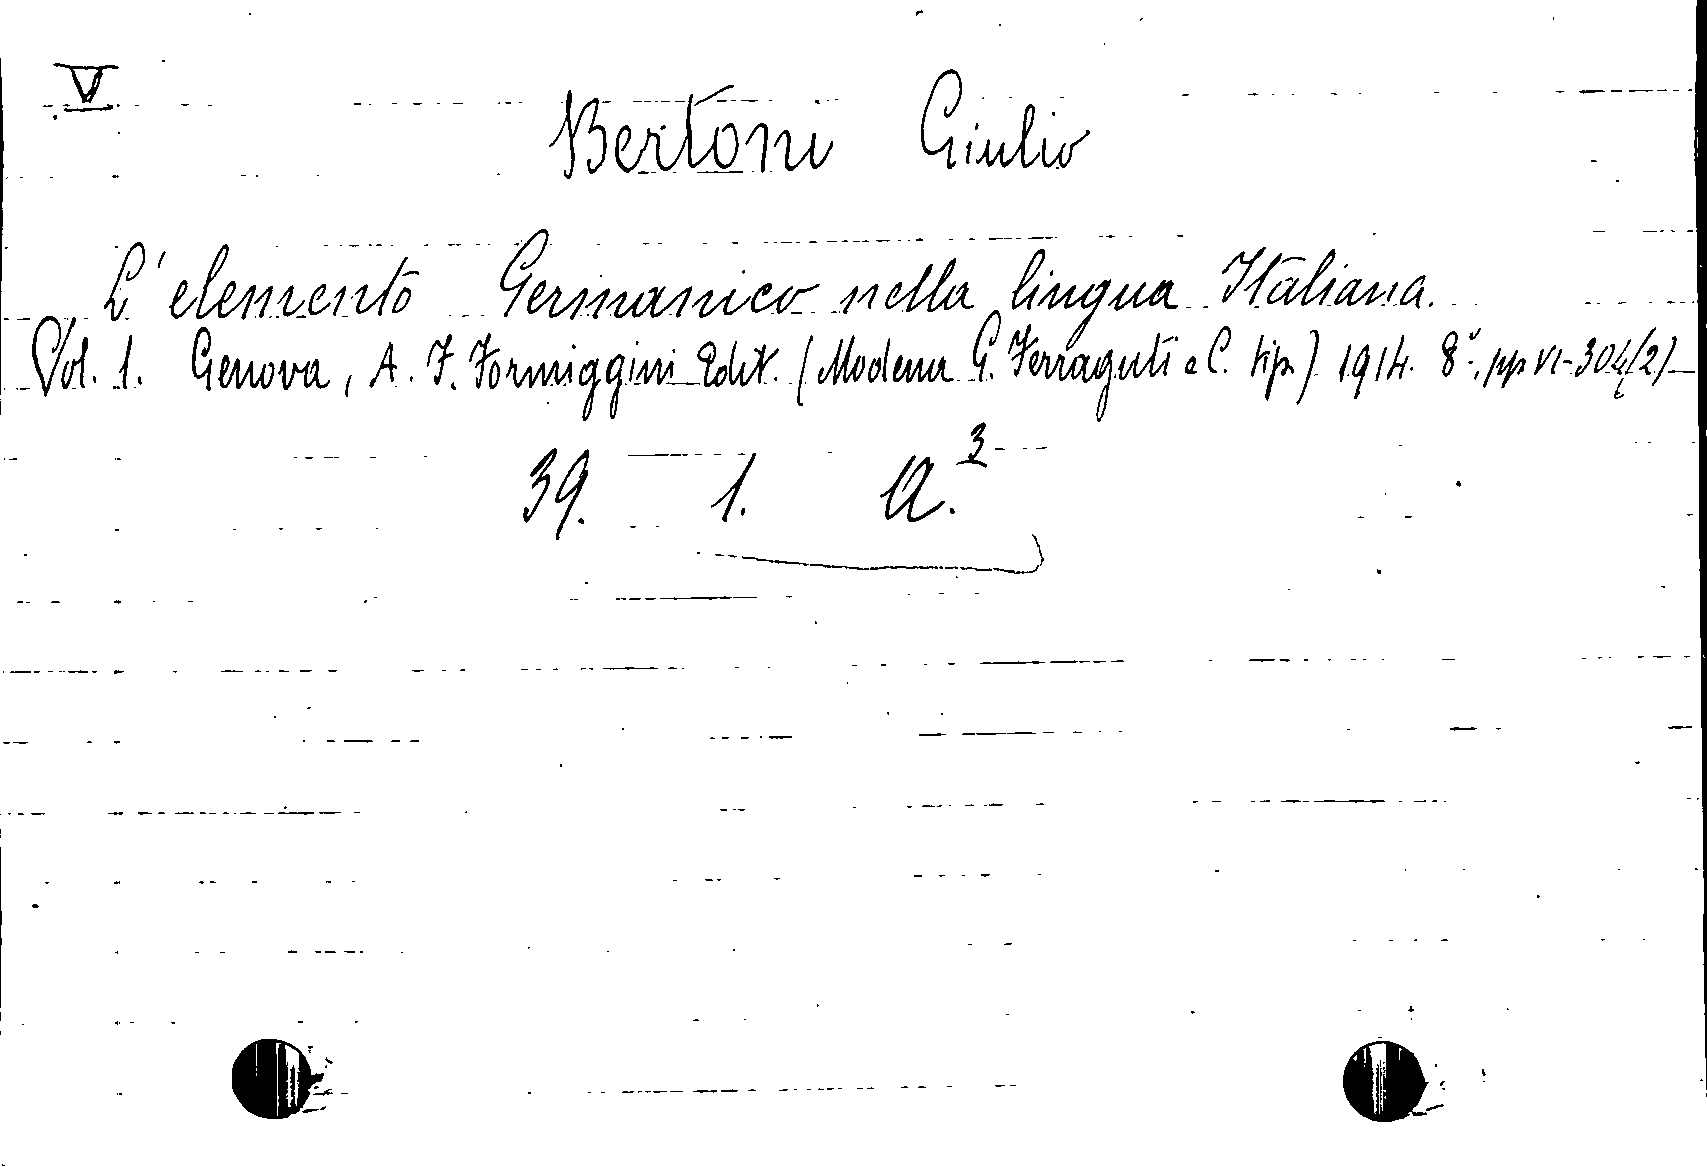 V
Bertoni Giulio
L'elemento Germanico nella lingua Italiana.
Vol. 1. Genova, A. F. Formiggini Edit. (Modena G. Ferraguti e C. tip.) 1914. 8°, pp VI-304 (2)
39. 1. A.3